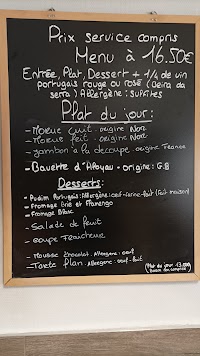 Prix service compris
Menu à 16.50€
Entrée, Plat, Dessert + 1/4 de vin
portugais rouge ou rosé (Beira da
serra) Allergène: sulfites
Plat du jour:
- Morue cuit - origine Nor.
- Morue feit - origine Nor.
- jambon à la decoupe origine France
- Bavette d'Aloyau - origine: G.B
Desserts:
- Pudim Portugais: Allergène: oeuf-farine-lait (fait maison)
- Fromage Brie et Flamengo
- Fromage Blanc
- Salade de fruit
- Coupe Fraicheur
- Mousse chocolat: Allergène: oeuf
- Tarte flan: Allergène: oeuf-lait
Plat du jour 13.00€
Boisson non comprise